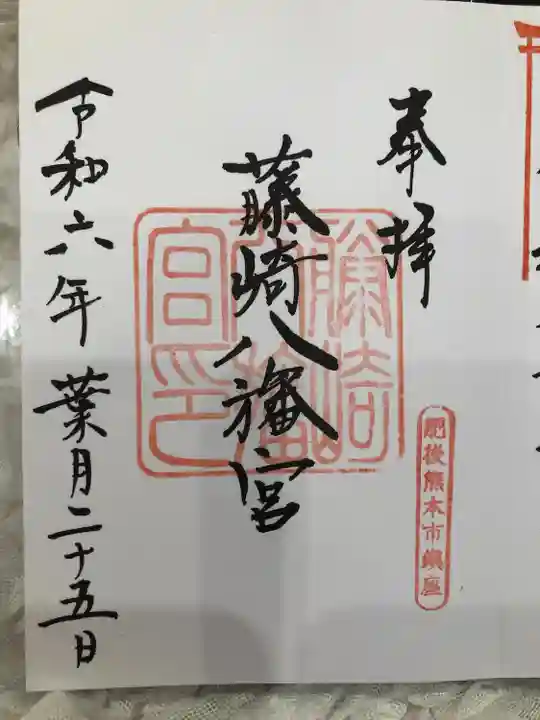 奉拝
肥後熊本市鎮座
藤崎八旛宮
藤崎八旛宮印
令和六年葉月二十五日